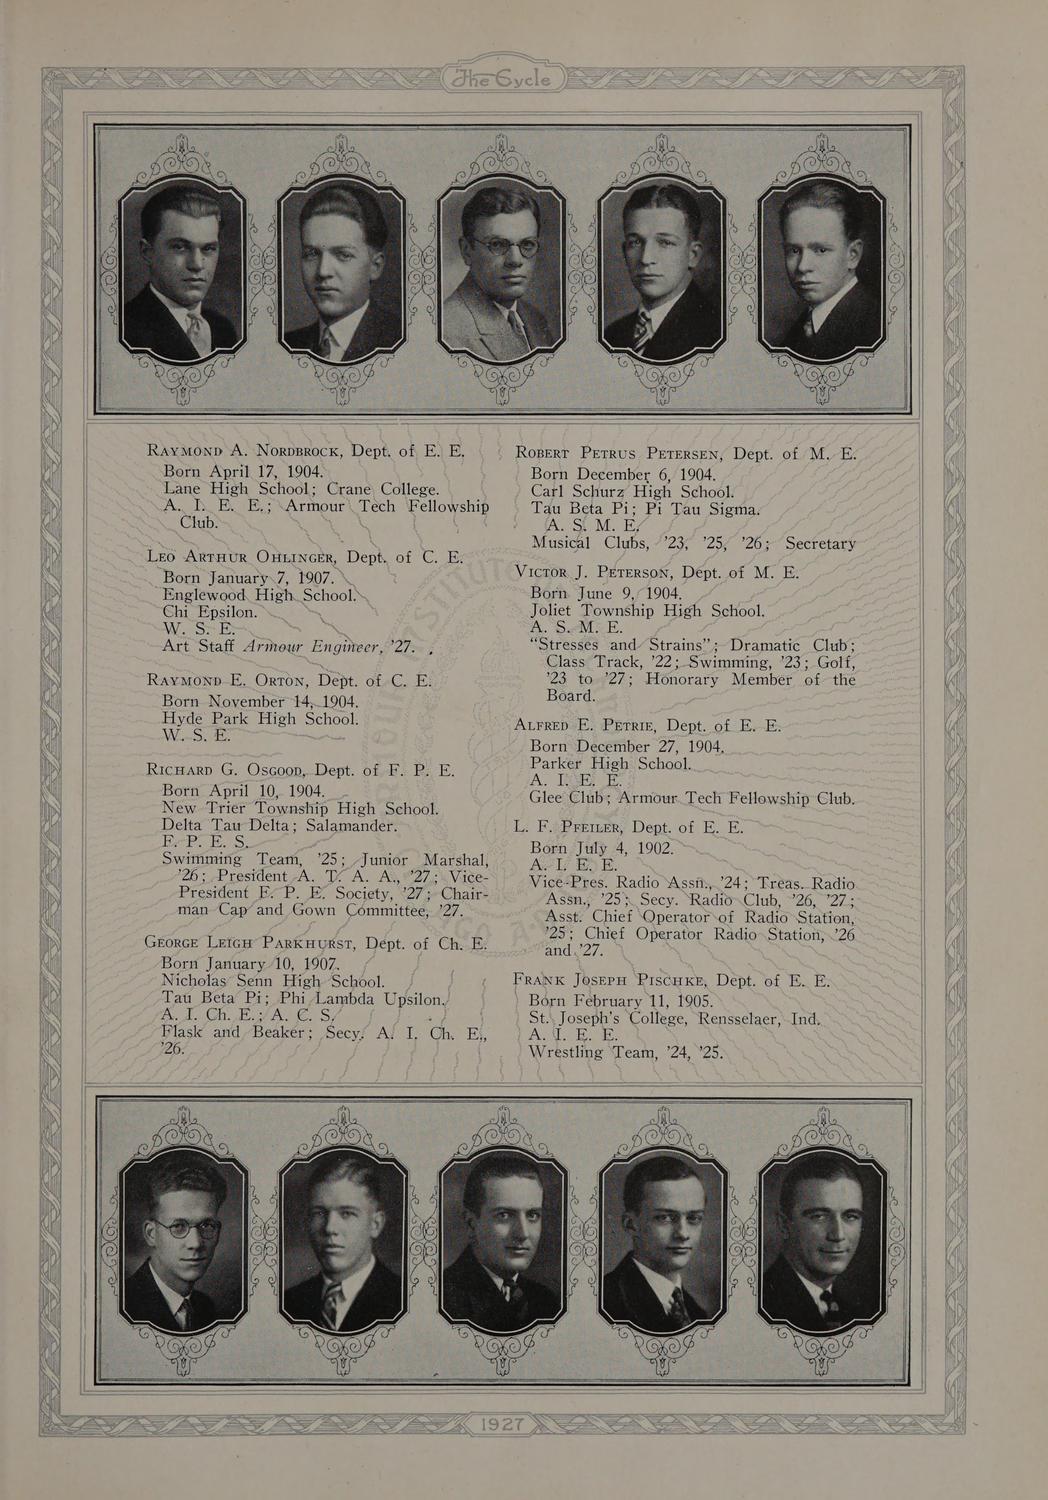 The Cycle
Raymond A. Nordbrock, Dept. of E. E.
Born April 17, 1904.
Lane High School; Crane College.
A. I. E. E.; Armour Tech Fellowship
Club.
Leo Arthur Ohlinger, Dept. of C. E.
Born January 7, 1907.
Englewood High School.
Chi Epsilon.
W. S. E.
Art Staff Armour Engineer, ’27.
Raymond E. Orton, Dept. of C. E.
Born November 14, 1904.
Hyde Park High School.
W. S. E.
Richard G. Osgood, Dept. of F. P. E.
Born April 10, 1904.
New Trier Township High School.
Delta Tau Delta; Salamander.
F. P. E. S.
Swimming Team, ’25; Junior Marshal,
’26; President A. T. A. A., ’27; Vice-
President F. P. E. Society, ’27; Chair-
man Cap and Gown Committee, ’27.
George Leigh Parkhurst, Dept. of Ch. E.
Born January 10, 1907.
Nicholas Senn High School.
Tau Beta Pi; Phi Lambda Upsilon.
A. I. Ch. E.; A. C. S.
Flask and Beaker; Secy. A. I. Ch. E.,
’26.
Robert Petrus Petersen, Dept. of M. E.
Born December 6, 1904.
Carl Schurz High School.
Tau Beta Pi; Pi Tau Sigma.
A. S. M. E.
Musical Clubs, ’23, ’25, ’26; Secretary
Victor J. Peterson, Dept. of M. E.
Born June 9, 1904.
Joliet Township High School.
A. S. M. E.
“Stresses and Strains”; Dramatic Club;
Class Track, ’22; Swimming, ’23; Golf,
’23 to ’27; Honorary Member of the
Board.
Alfred E. Petrie, Dept. of E. E.
Born December 27, 1904.
Parker High School.
A. I. E. E.
Glee Club; Armour Tech Fellowship Club.
L. F. Pfeiler, Dept. of E. E.
Born July 4, 1902.
A. I. E. E.
Vice-Pres. Radio Assn., ’24; Treas. Radio
Assn., ’25; Secy. Radio Club, ’26, ’27;
Asst. Chief Operator of Radio Station,
’25; Chief Operator Radio Station, ’26
and ’27.
Frank Joseph Pischke, Dept. of E. E.
Born February 11, 1905.
St. Joseph’s College, Rensselaer, Ind.
A. I. E. E.
Wrestling Team, ’24, ’25.
1927